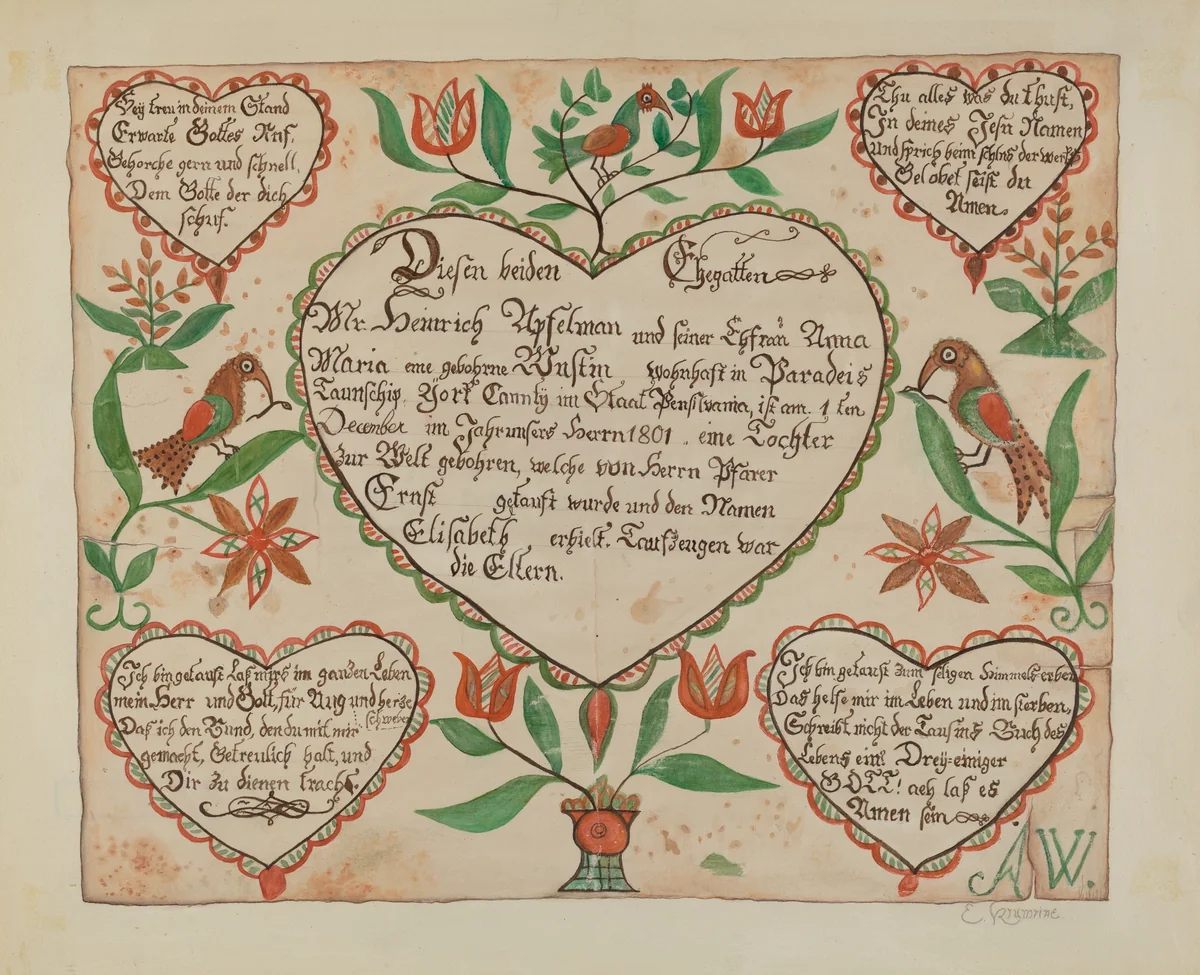 Sey treu in deinem Stand
Erwarte Gottes Ruf.
Gehorche gern und schnell,
Dem Gotte der dich
schuf.
Thu alles was du thust,
In deines Jesu Namen
Und sprich beim schlus der werke
Gelobet seist du
Amen.
Diesen beiden Ehegatten
Mr. Heinrich Apfelman und seiner Ehfrau Anna
Maria eine gebohrne Wustin wohnhaft in Paradeis
Taunschip, York Caunty im Staat Pensilvania, ist am 1 ten
December im Jahr unsers Herrn 1801. eine Tochter
zur Welt gebohren, welche von Herrn Pfarer
Ernst getauft wurde und den Namen
Elisabeth erhielt. Taufzeugen war
die Eltern.
Ich bin getauft Laß mirs im ganzen Leben
mein Herr und Gott, für Aug und herze
schweben
Daß ich den Bund, den du mit mir
gemacht, Getreulich halt, und
Dir zu dienen tracht.
Ich bin getauft zum seligen Himmels-erben
Das helfe mir im Leben und im sterben,
Schreibt nicht der Tauf ins Buch des
Lebens ein! Drey-einiger
GOTT! ach laß es
Amen sein
AW.
E. Krumrine